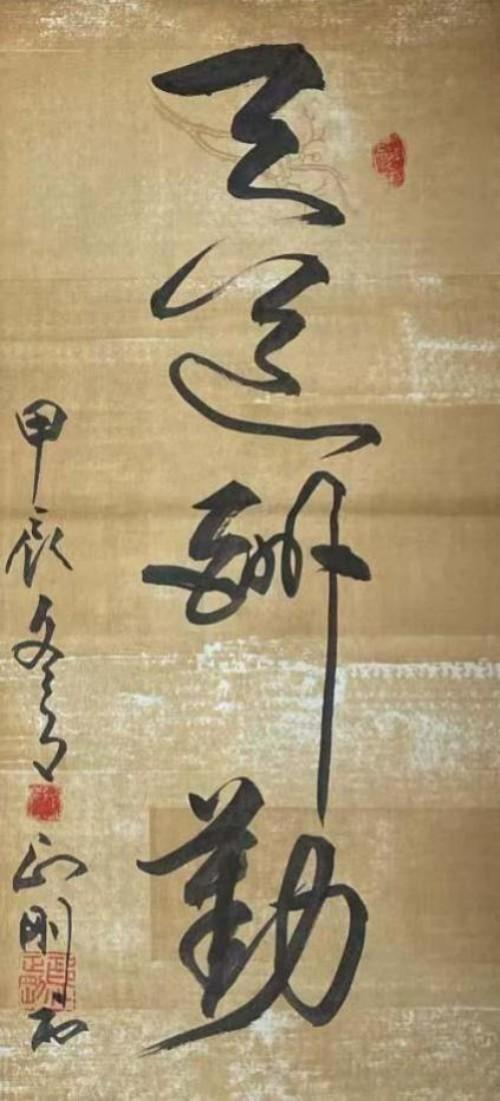 天道酬勤
甲辰冬月
正刚书